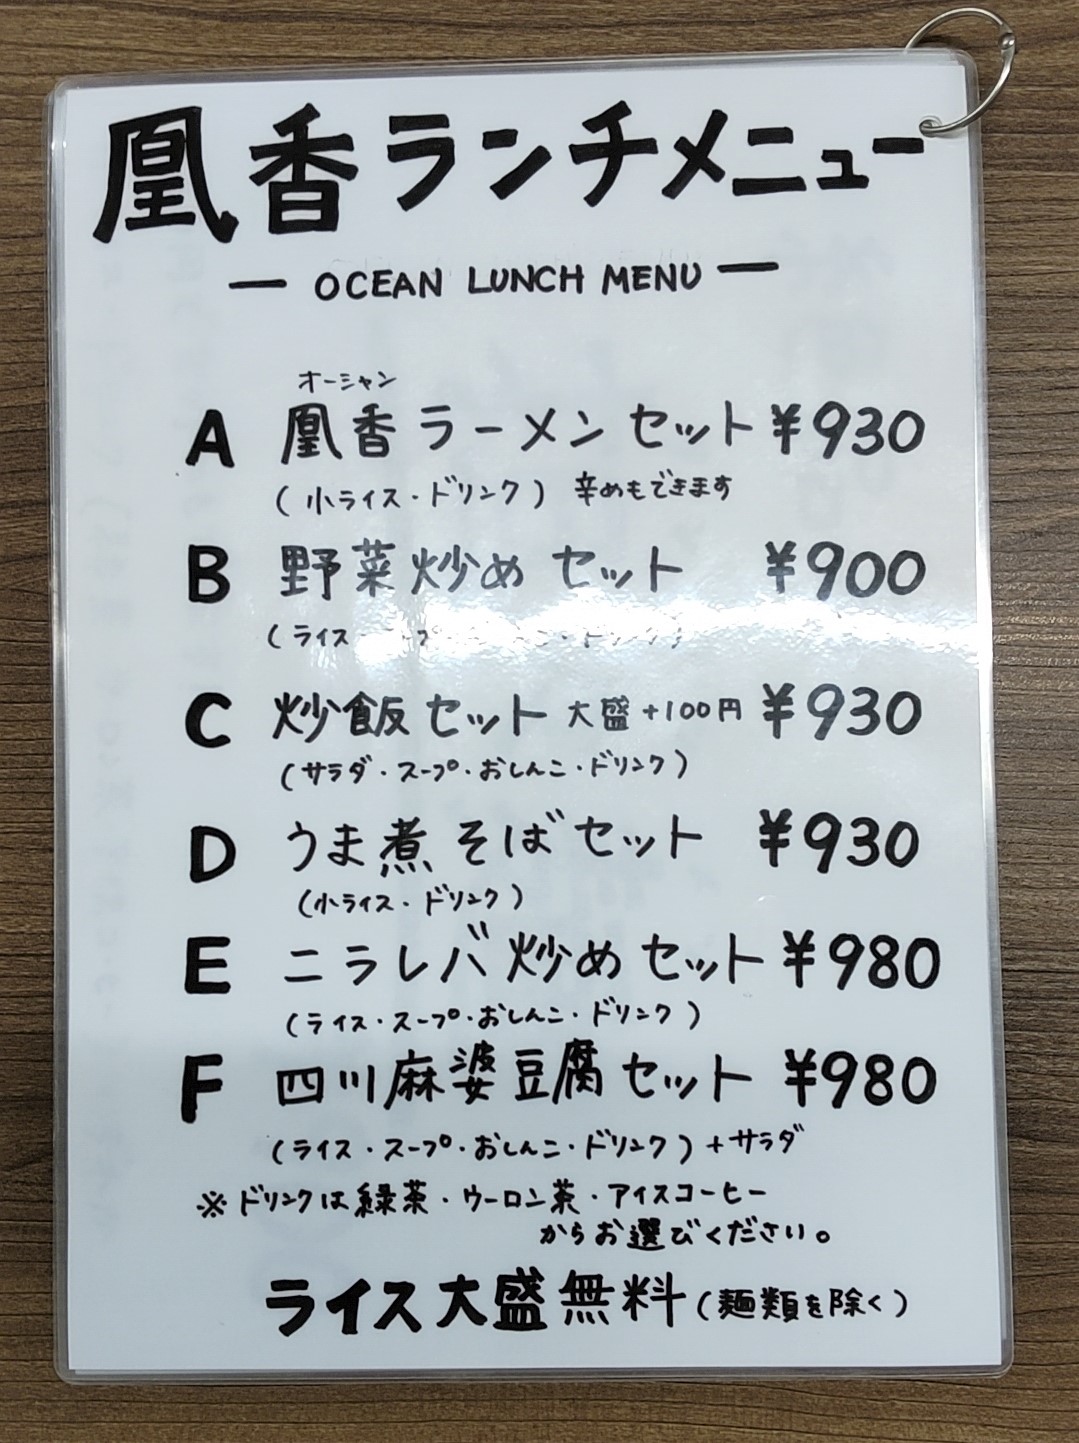 凰香ランチメニュー
— OCEAN LUNCH MENU —
オーシャン
A 凰香ラーメンセット ¥930
(小ライス・ドリンク) 辛めもできます
B 野菜炒めセット ¥900
(ライス・スープ・おしんこ・ドリンク)
C 炒飯セット 大盛+100円 ¥930
(サラダ・スープ・おしんこ・ドリンク)
D うま煮そばセット ¥930
(小ライス・ドリンク)
E ニラレバ炒めセット ¥980
(ライス・スープ・おしんこ・ドリンク)
F 四川麻婆豆腐セット ¥980
(ライス・スープ・おしんこ・ドリンク)+サラダ
※ドリンクは緑茶・ウーロン茶・アイスコーヒー
からお選びください。
ライス大盛無料(麺類を除く)